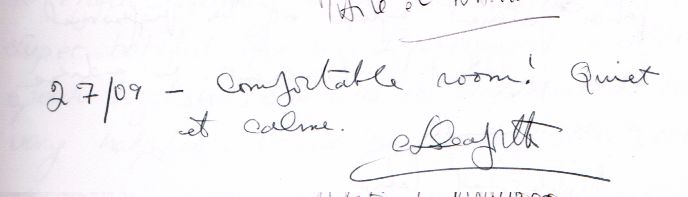 27/09 - Comfortable room! Quiet
et calme.